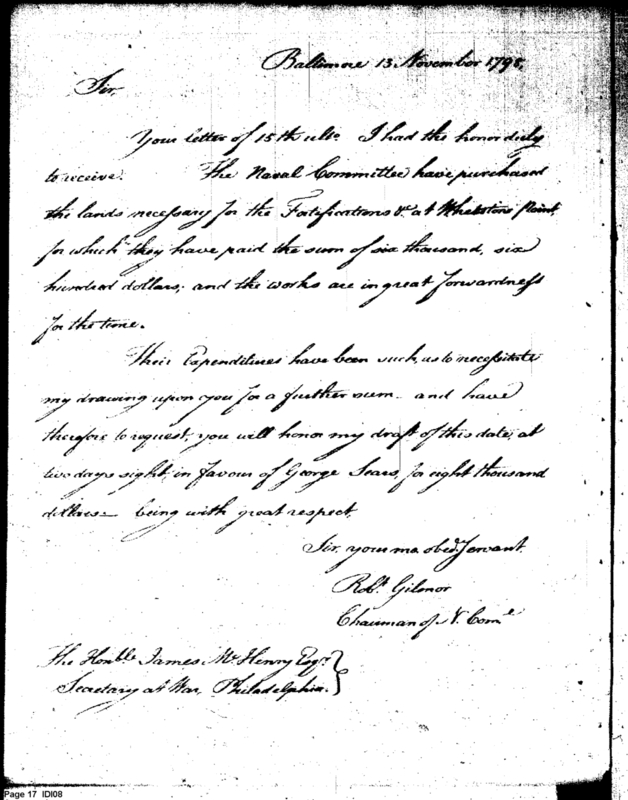 Baltimore 13 November 1798,
Sir,
Your letter of 15th ulto. I had the honor duly
to receive. The Naval Committee have purchased
the lands necessary for the Fortifications &c at Whetstone Point,
for which they have paid the sum of six thousand, six
hundred dollars; and the works are in great forwardness
for the time.
Their Expenditures have been such, as to necessitate
my drawing upon you for a further sum. and have
therefore to request, you will honor my draft of this date, at
two days sight, in favour of George Sears, for eight thousand
dollars— being with great respect,
Sir, your mo. obedt. Servant.
Robt. Gilmor
Chairman of N. Come
The Honble James Mc.Henry Esqr.
Secretary at War, Philadelphia.
Page 17 IDI08